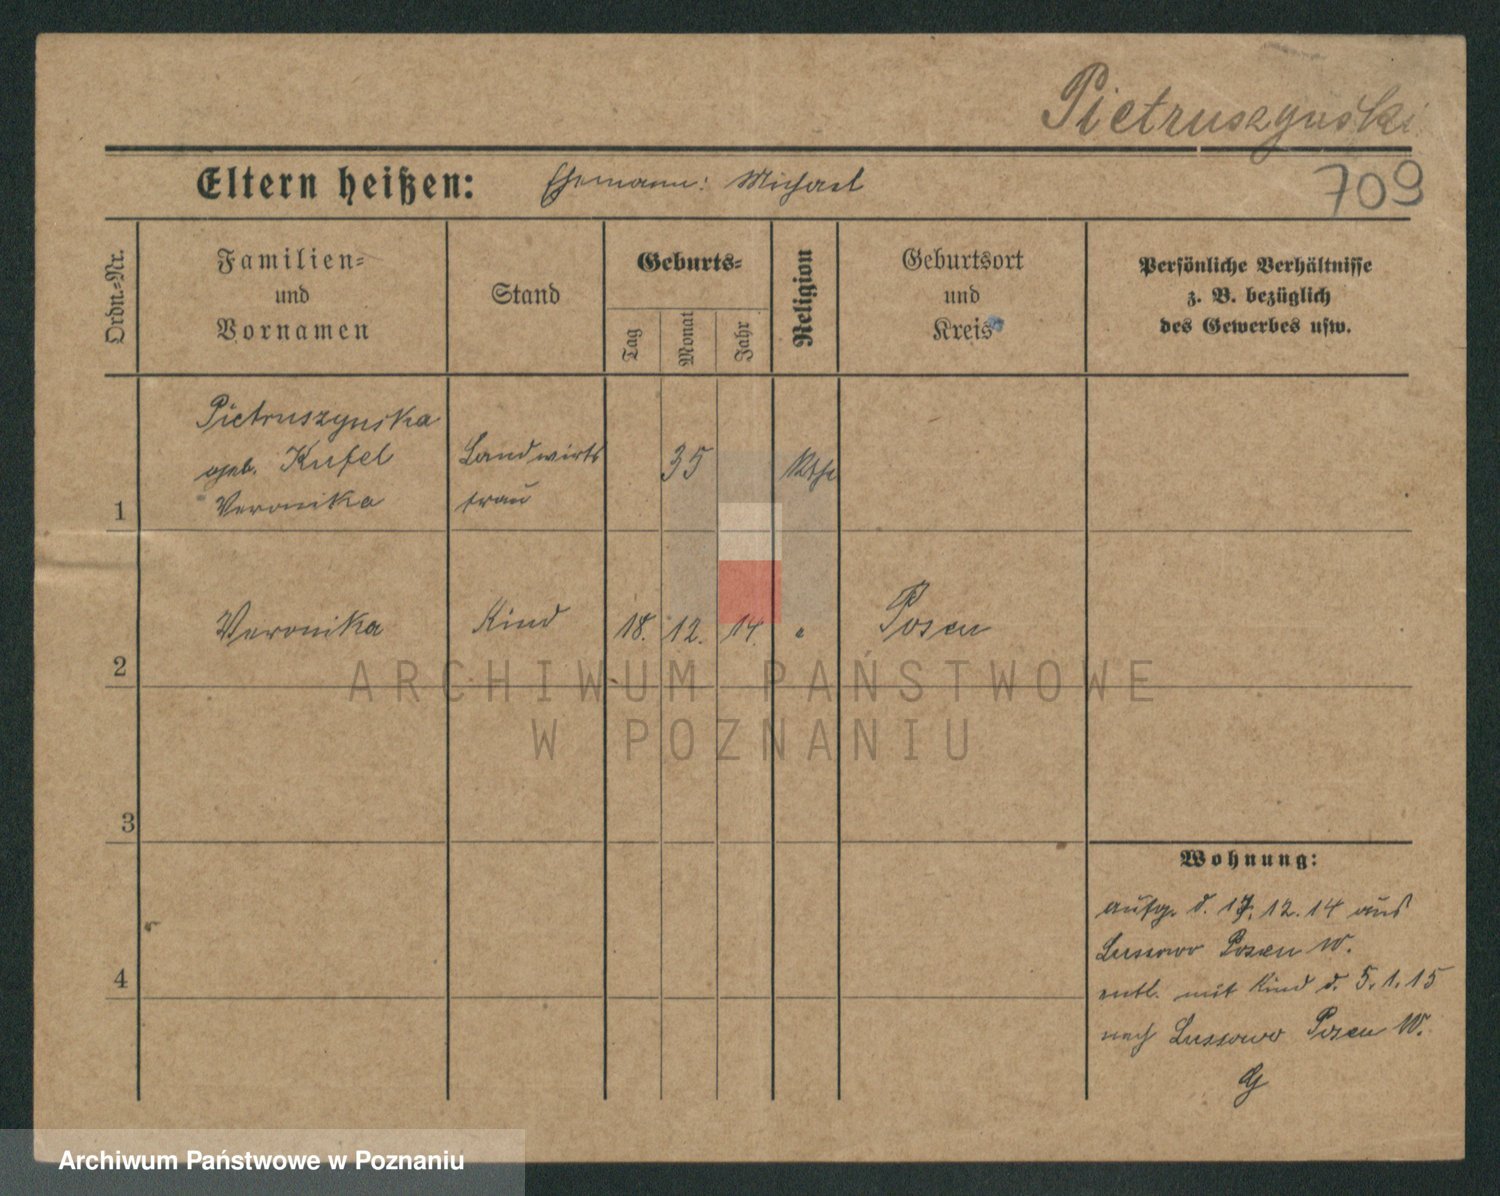 Pietruszynski
Eltern heißen: Ehemann: Michael
709
Ordn.=Nr.
Familien=
und
Vornamen
Stand
Geburts=
Tag
Monat
Jahr
Religion
Geburtsort
und
Kreis
Persönliche Verhältnisse
z. B. bezüglich
des Gewerbes usw.
1
Pietruszynska
geb. Kufel
Veronika
Landwirts
frau
35
kth
2
Veronika
Kind
18. 12. 14
"
Posen
ARCHIWUM PAŃSTWOWE
W POZNANIU
3
Wohnung:
4
aufg. d. 17. 12. 14 aus
Lussowo Posen W.
entl. mit Kind d. 5. 1. 15
nach Lussowo Posen W.
Archiwum Państwowe w Poznaniu